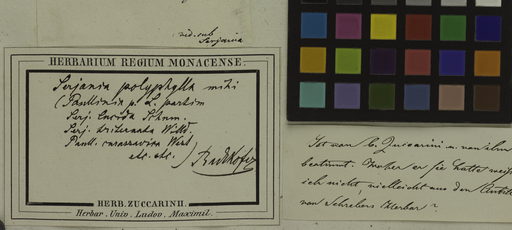 vid. sub
Serjania
HERBARIUM REGIUM MONACENSE.
Serjania polyphylla mihi
(Paullinia p. L. partim
Serj. lucida Schum.
Serj. triternata Willd.
Paull.
etc. etc.)
Radlkofer
HERB. ZUCCARINII.
Herbar. Univ. Ludov. Maximil.
Ist von C. Zuccarini u. von ihm
bestimmt. Woher er sie hatte weiß
ich nicht, vielleicht aus den
von Schrebers Herbar?